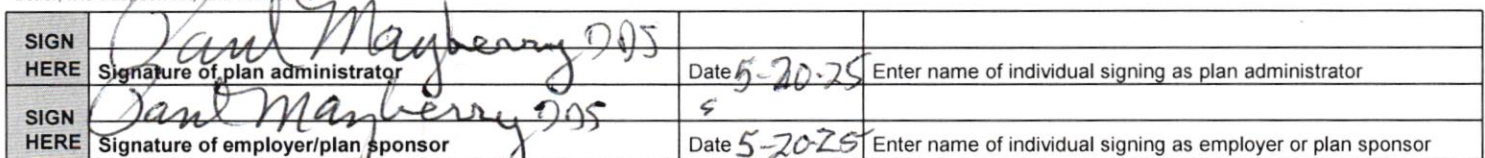 SIGN Paul Mayberry DDS
HERE Signature of plan administrator Date 5-20-25 Enter name of individual signing as plan administrator
SIGN Paul Mayberry DDS
HERE Signature of employer/plan sponsor Date 5-20-25 Enter name of individual signing as employer or plan sponsor